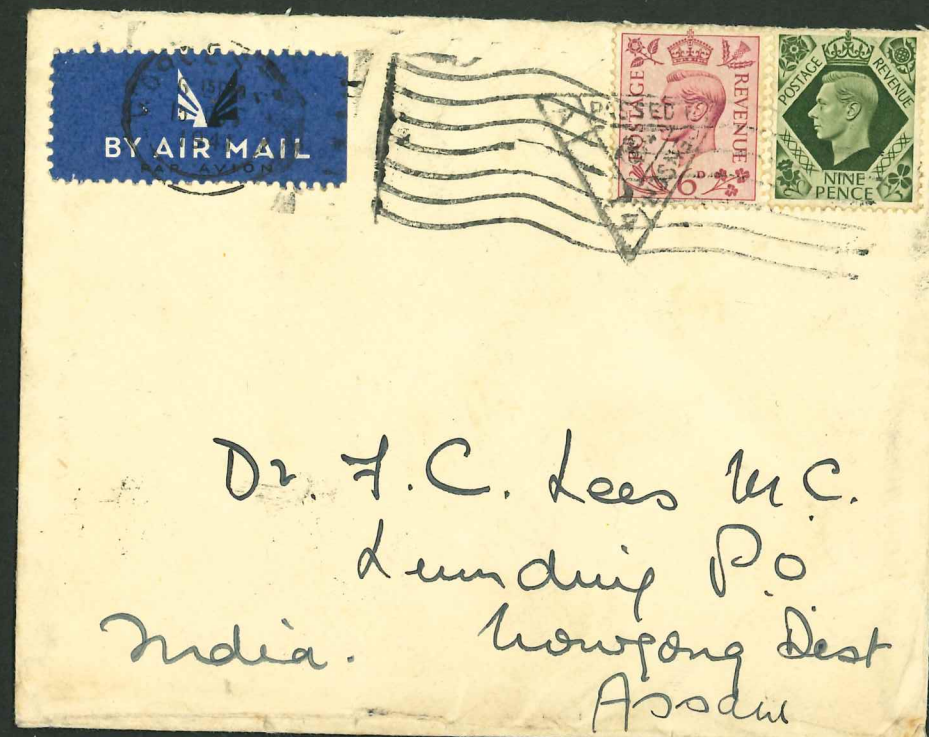 BY AIR MAIL
PAR AVION
POSTED
POSTAGE REVENUE
6D
POSTAGE REVENUE
NINE
PENCE
Dr. F. C. Lees M.C.
Lumding P.O
Nowgong Dist
India.
Assam